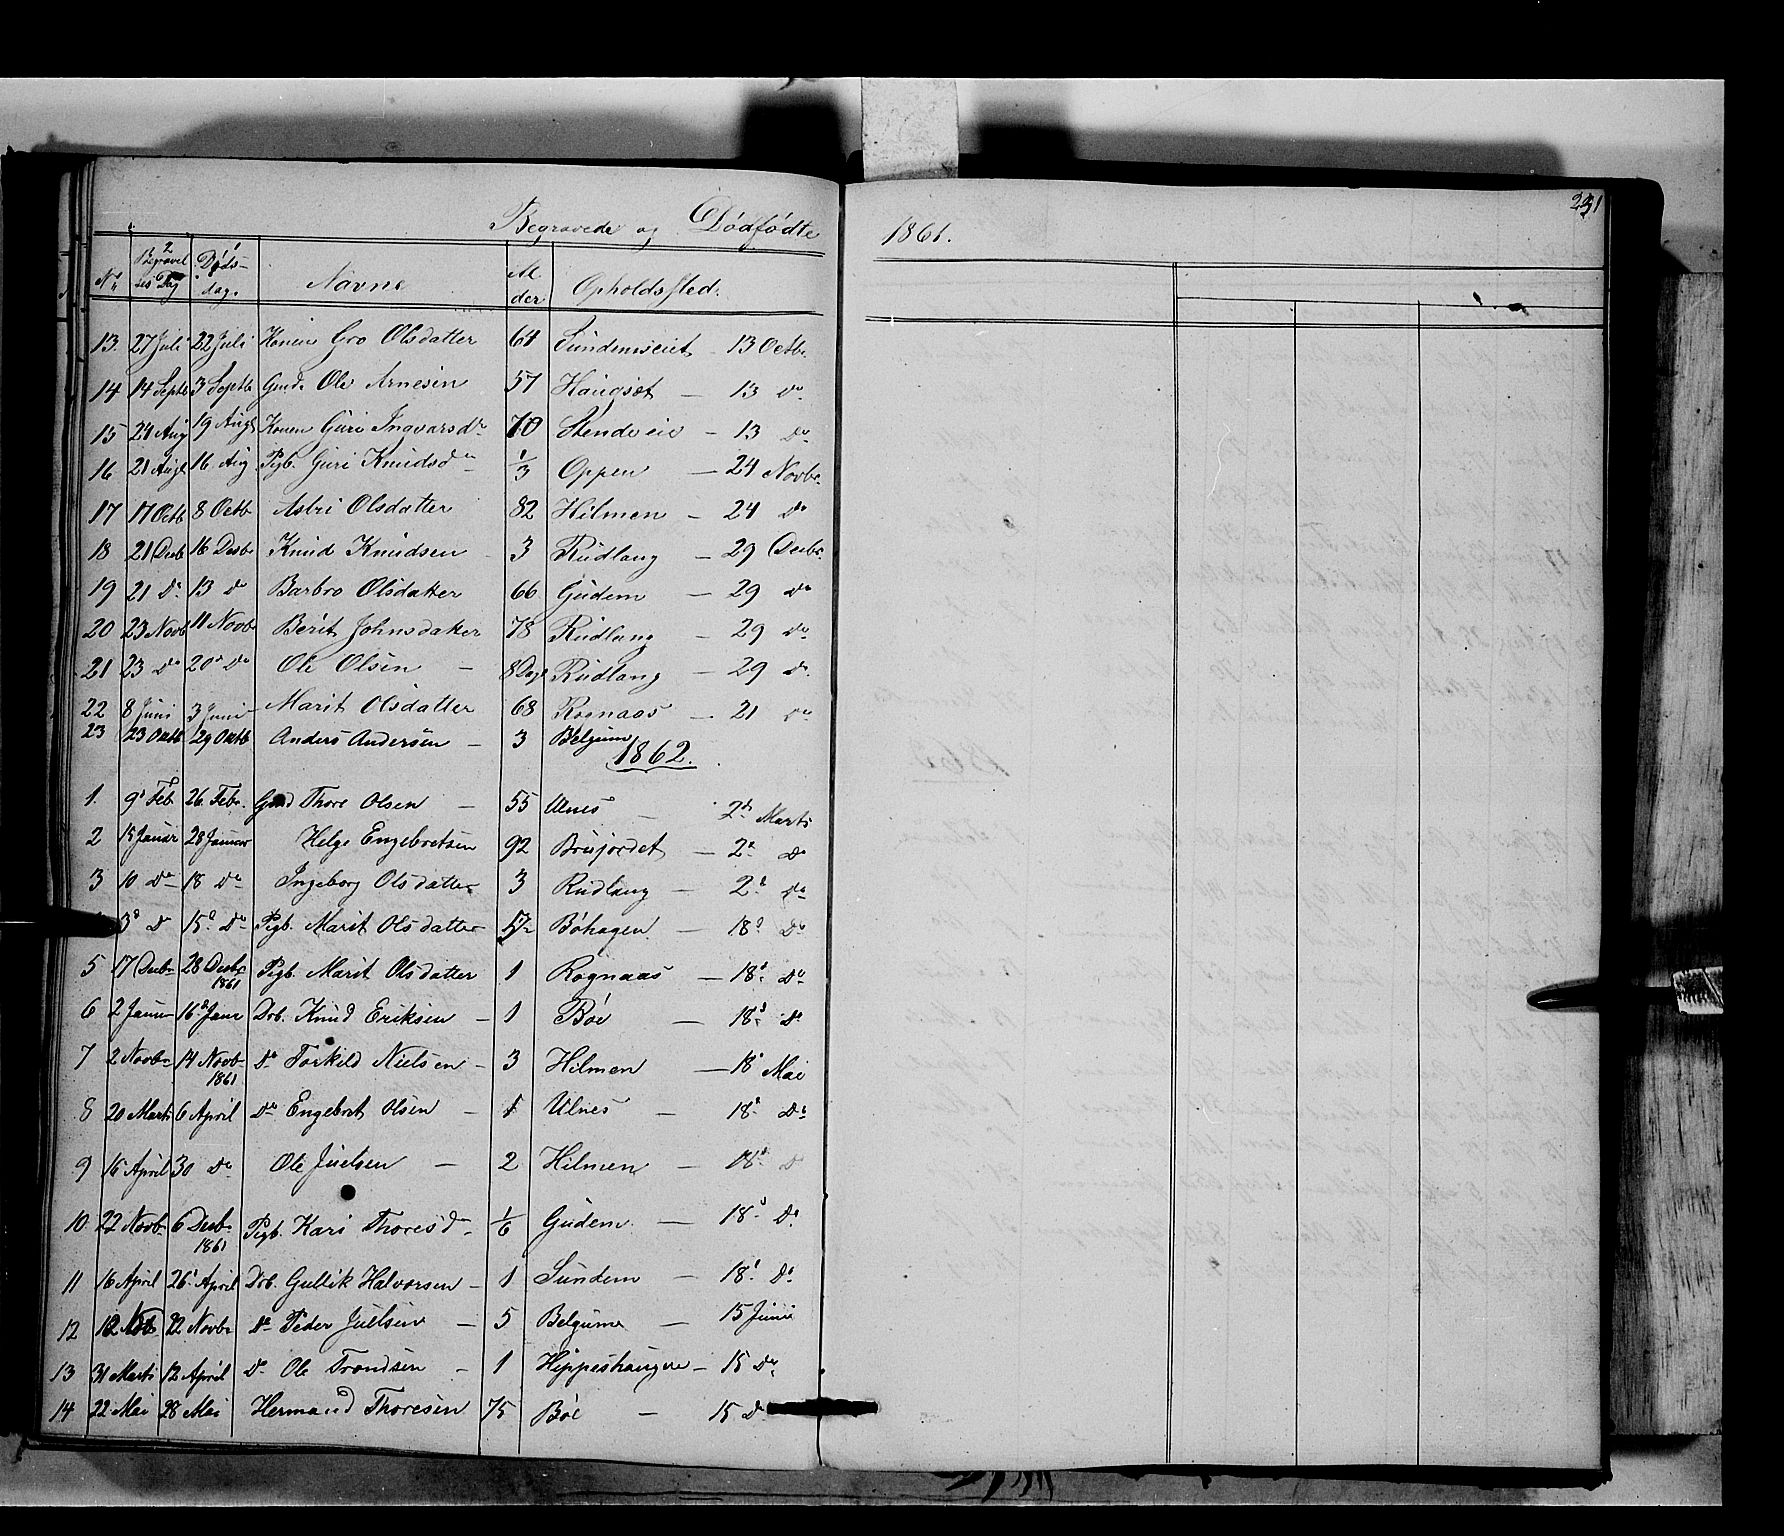 Begravede og Dødfødte 1861. 231
No 2 Begravelses Tag 1 Døds-dag. Navne Alder Opholdssted.
13. 27 Juli 22 Juli Konen Gro Olsdatter 61 Sundemseiet - 13 Octb.
14 14 Septb 3 Septb Gmd. Ole Arnesen 57 Haugset - 13 Do
15 24 Aug 19 Aug Konen Guri Ingvarsdr 70 Stende eie - 13 Do
16 21 Augt 16 Aug. Pigb. Guri Knudsdr 1/3 Oppen - 24 Novbr
17 17 Octb 8 Octb Astri Olsdatter 82 Hilmen - 24 Do
18 21 Decb 16 Decbr Knud Knudsen 3 Rudlang - 29 Decbr
19 21 Do 13 Do Barbro Olsdatter 66 Gudem - 29 Do
20 23 Novb 11 Novbr Berit Johnsdatter 78 Rudlang - 29 Do
21 23 Do 20 Do Ole Olsen - 8 Dage Rudlang - 29 Do
22 8 Juni 3 Juni Marit Olsdatter 68 Rognaas - 21 Do
23 23 Octb 29 Octb Anders Andersen - 3 Belgum
1862.
1. 9 Feb 26 Febr. Gmd Thore Olsen - 55 Ulnes - 2d Marts
2 15 Januar 28 Januar Helge Engebretsen 92 Brujordet - 2d Do
3 10 Do 18 Do Ingeborg Olsdatter 3 Rudlang - 2d Do
3d Do 15d Do Pigb. Marit Olsdatter Bøhagen - 18d Do
5 17 Decbr 28 Decbr 1861 Pigb. Marit Olsdatter 1 Rognaas - 18d Do
6 2 Januar 16d Janr Drb. Knud Eriksen - 1 Bøe - 18d Do
7 2 Novbr 14 Novbr 1861 Do Torkild Nielsen - 3 Hilmen - 18 Mai
8 20 Marts 6 April Do Engebret Olsen - 1 Ulnes - 18d Do
9 16 April 30 Do Ole Juelsen - 2 Hilmen - 18d Do
10. 22 Novbr 6 Decbr 1861 Pigb. Kari Thoresdr 1/6 Gudem - 18d Do
11 16 April 26 April Drb. Gullik Halvorsen - 1 Sundem - 18d Do
12 22 Novbr Do Peder Juelsen - 5 Belgum - 15 Juni
13 31 Marts 12 April Do Ole Trondsen - 1 Hippeshaugen - 15 Do
14 22 Mai 28 Mai Hermand Thoresen 75 Bøe - 15 Do